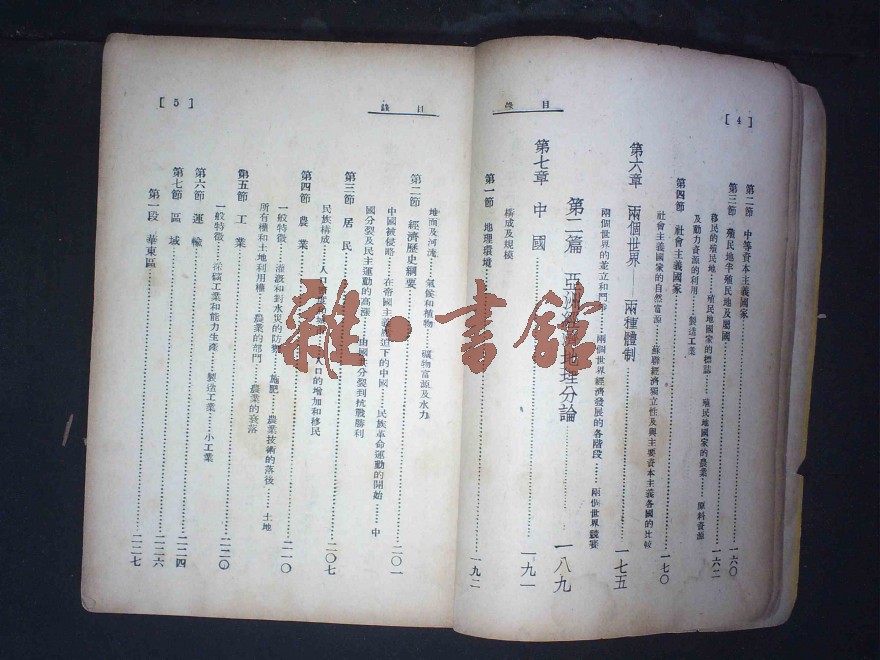 [4]
目錄
第二節 中等資本主義國家……一六〇
第三節 殖民地半殖民地及屬國……一六二
移民的殖民地……殖民地國家的標誌……殖民地國家的農業……原料資源
及動力資源的利用……製造工業
第四節 社會主義國家……一七〇
社會主義國家的自然富源……蘇聯經濟獨立性及與主要資本主義各國的比較
第六章 兩個世界——兩種體制……一七五
兩個世界的並立和鬥爭……兩個世界經濟發展的各階段……兩個世界競賽
第二篇 亞洲經濟地理分論……一八九
第七章 中國……一九一
構成及規模
第一節 地理環境……一九二
[5]
目錄
地面及河流……氣候和植物……礦物富源及水力
第二節 經濟歷史綱要……二〇一
中國被侵略……在帝國主義壓迫下的中國……民族革命運動的開始……中
國分裂及民主運動的高漲……由國共分裂到抗戰勝利
第三節 居民……二〇七
民族構成……人口……人口的增加和移民
第四節 農業……二一〇
一般特徵……灌溉和對水災的防禦……施肥……農業技術的落後……土地
所有權和土地利用權……農業的部門……農業的衰落
第五節 工業……二二〇
一般特徵……採礦工業和能力生產……製造工業……小工業
第六節 運輸……二二四
第七節 區域……二二六
第一段 華東區……二二七
雜·書館